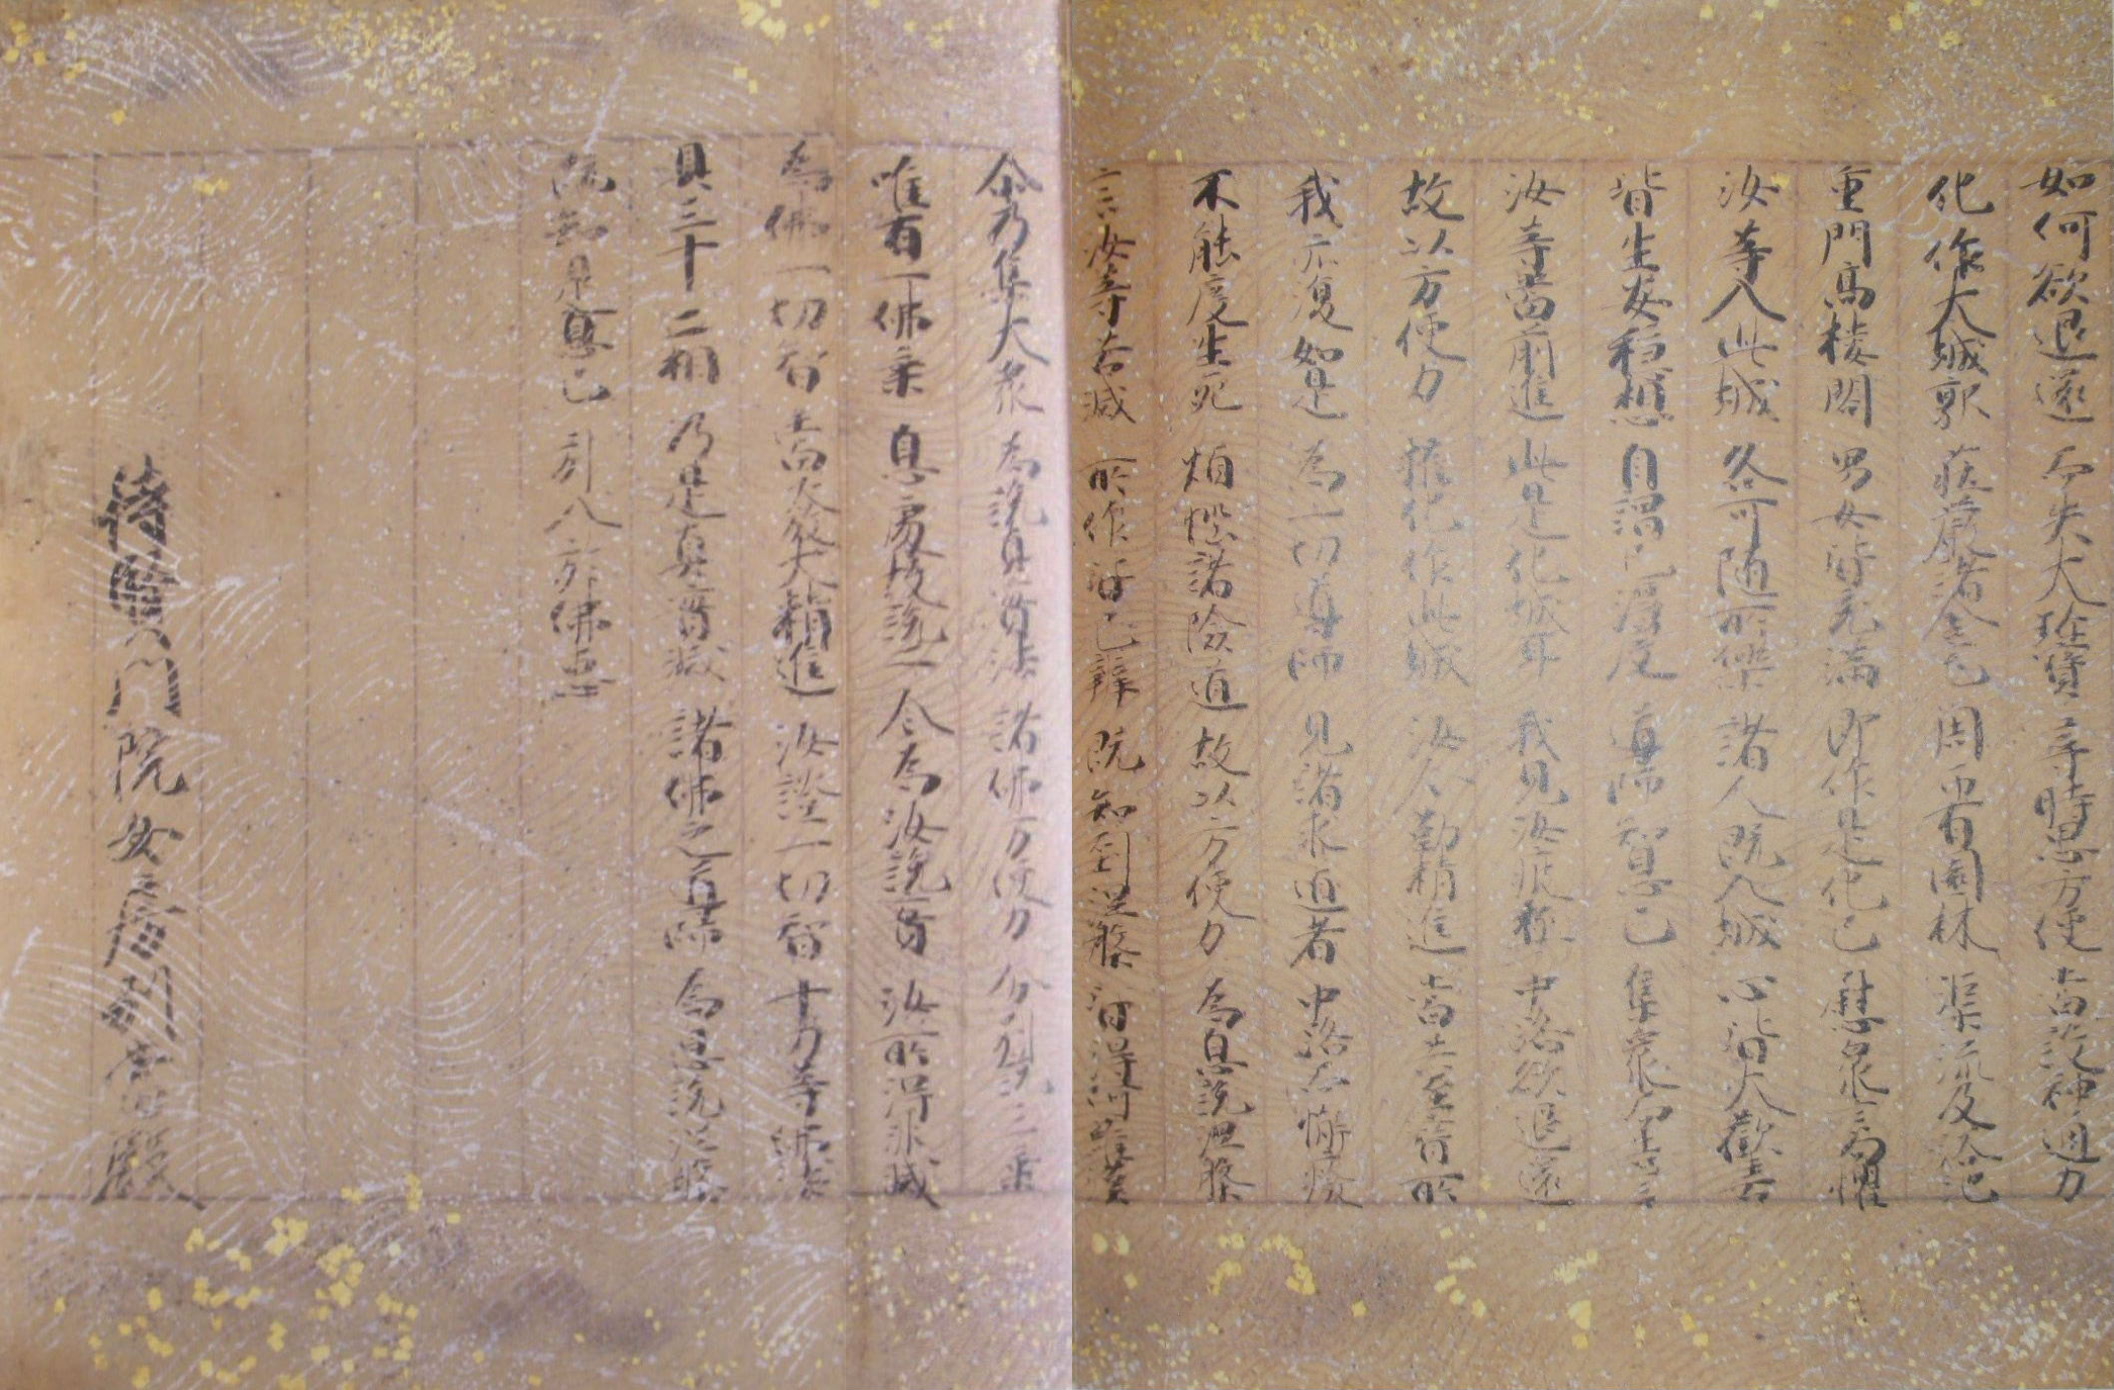 如何欲退還 而失大珍寶 尋時思方便 當設神通力
化作大城郭 莊嚴諸舍宅 周帀有園林 渠流及浴池
重門高樓閣 男女皆充滿 即作是化已 慰衆言勿懼
汝等入此城 各可隨所樂 諸人既入城 心皆大歡喜
皆生安穩想 自謂已得度 導師知息已 集衆而告言
汝等當前進 此是化城耳 我見汝疲極 中路欲退還
故以方便力 權化作此城 汝今勤精進 當共至寶所
我亦復如是 為一切導師 見諸求道者 中路而懈廢
不能度生死 煩惱諸險道 故以方便力 為息說涅槃
言汝等苦滅 所作皆已辦 既知到涅槃 皆得阿羅漢
尒乃集大衆 為說真實法 諸佛方便力 分別說三乘
唯有一佛乘 息處故說二 今為汝說實 汝所得非滅
為佛一切智 當發大精進 汝證一切智 十力等佛法
具三十二相 乃是真實滅 諸佛之導師 為息說涅槃
既知是息已 引入於佛慧
待賢門院女房
殿